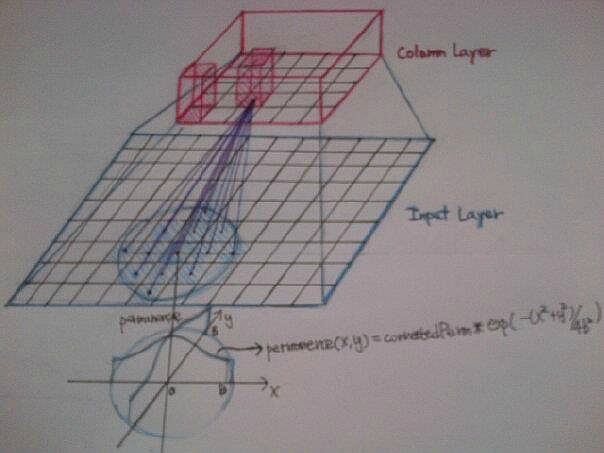 Column Layer
Input Layer
permanence
y
b
permanence(x,y) = connectedPerm * exp(-(x²+y²)/4b²)
o
b
x